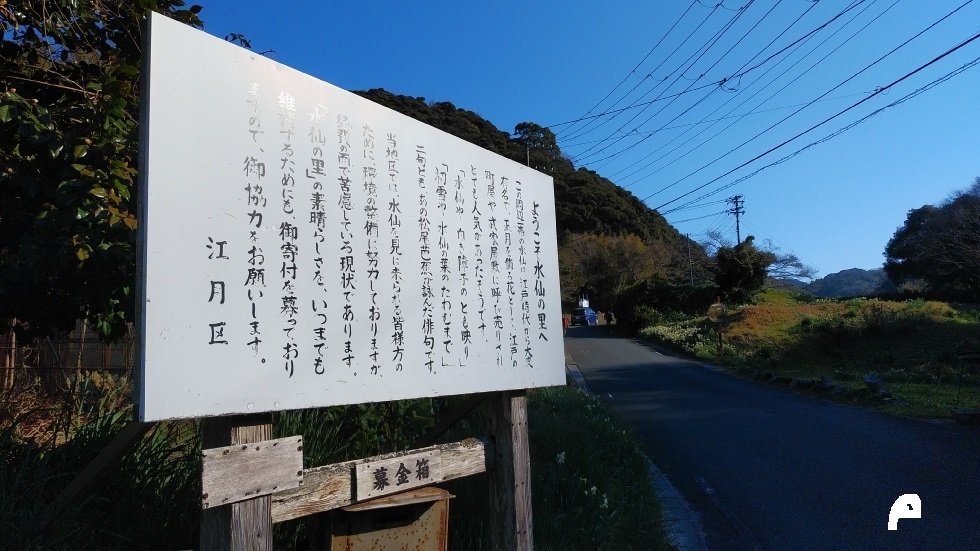 ようこそ 水仙の里へ
この周辺一帯の水仙は、江戸時代から大変
有名で、正月を飾る花として、江戸の
町屋や、武家屋敷に呼び売りされ
とても人気があったそうです。
「水仙や 白き障子の とも映り」
「初雪や 水仙の葉の たわむまで」
二句とも、あの松尾芭蕉が詠んだ俳句です。
当地区では、水仙を見に来られる皆様方の
ために、環境の整備に努力しておりますが、
経費の面で苦慮している現状であります。
「水仙の里」の素晴らしさを、いつまでも
維持するためにも、御寄付を募っており
ますので、御協力をお願いします。
江月区
募金箱